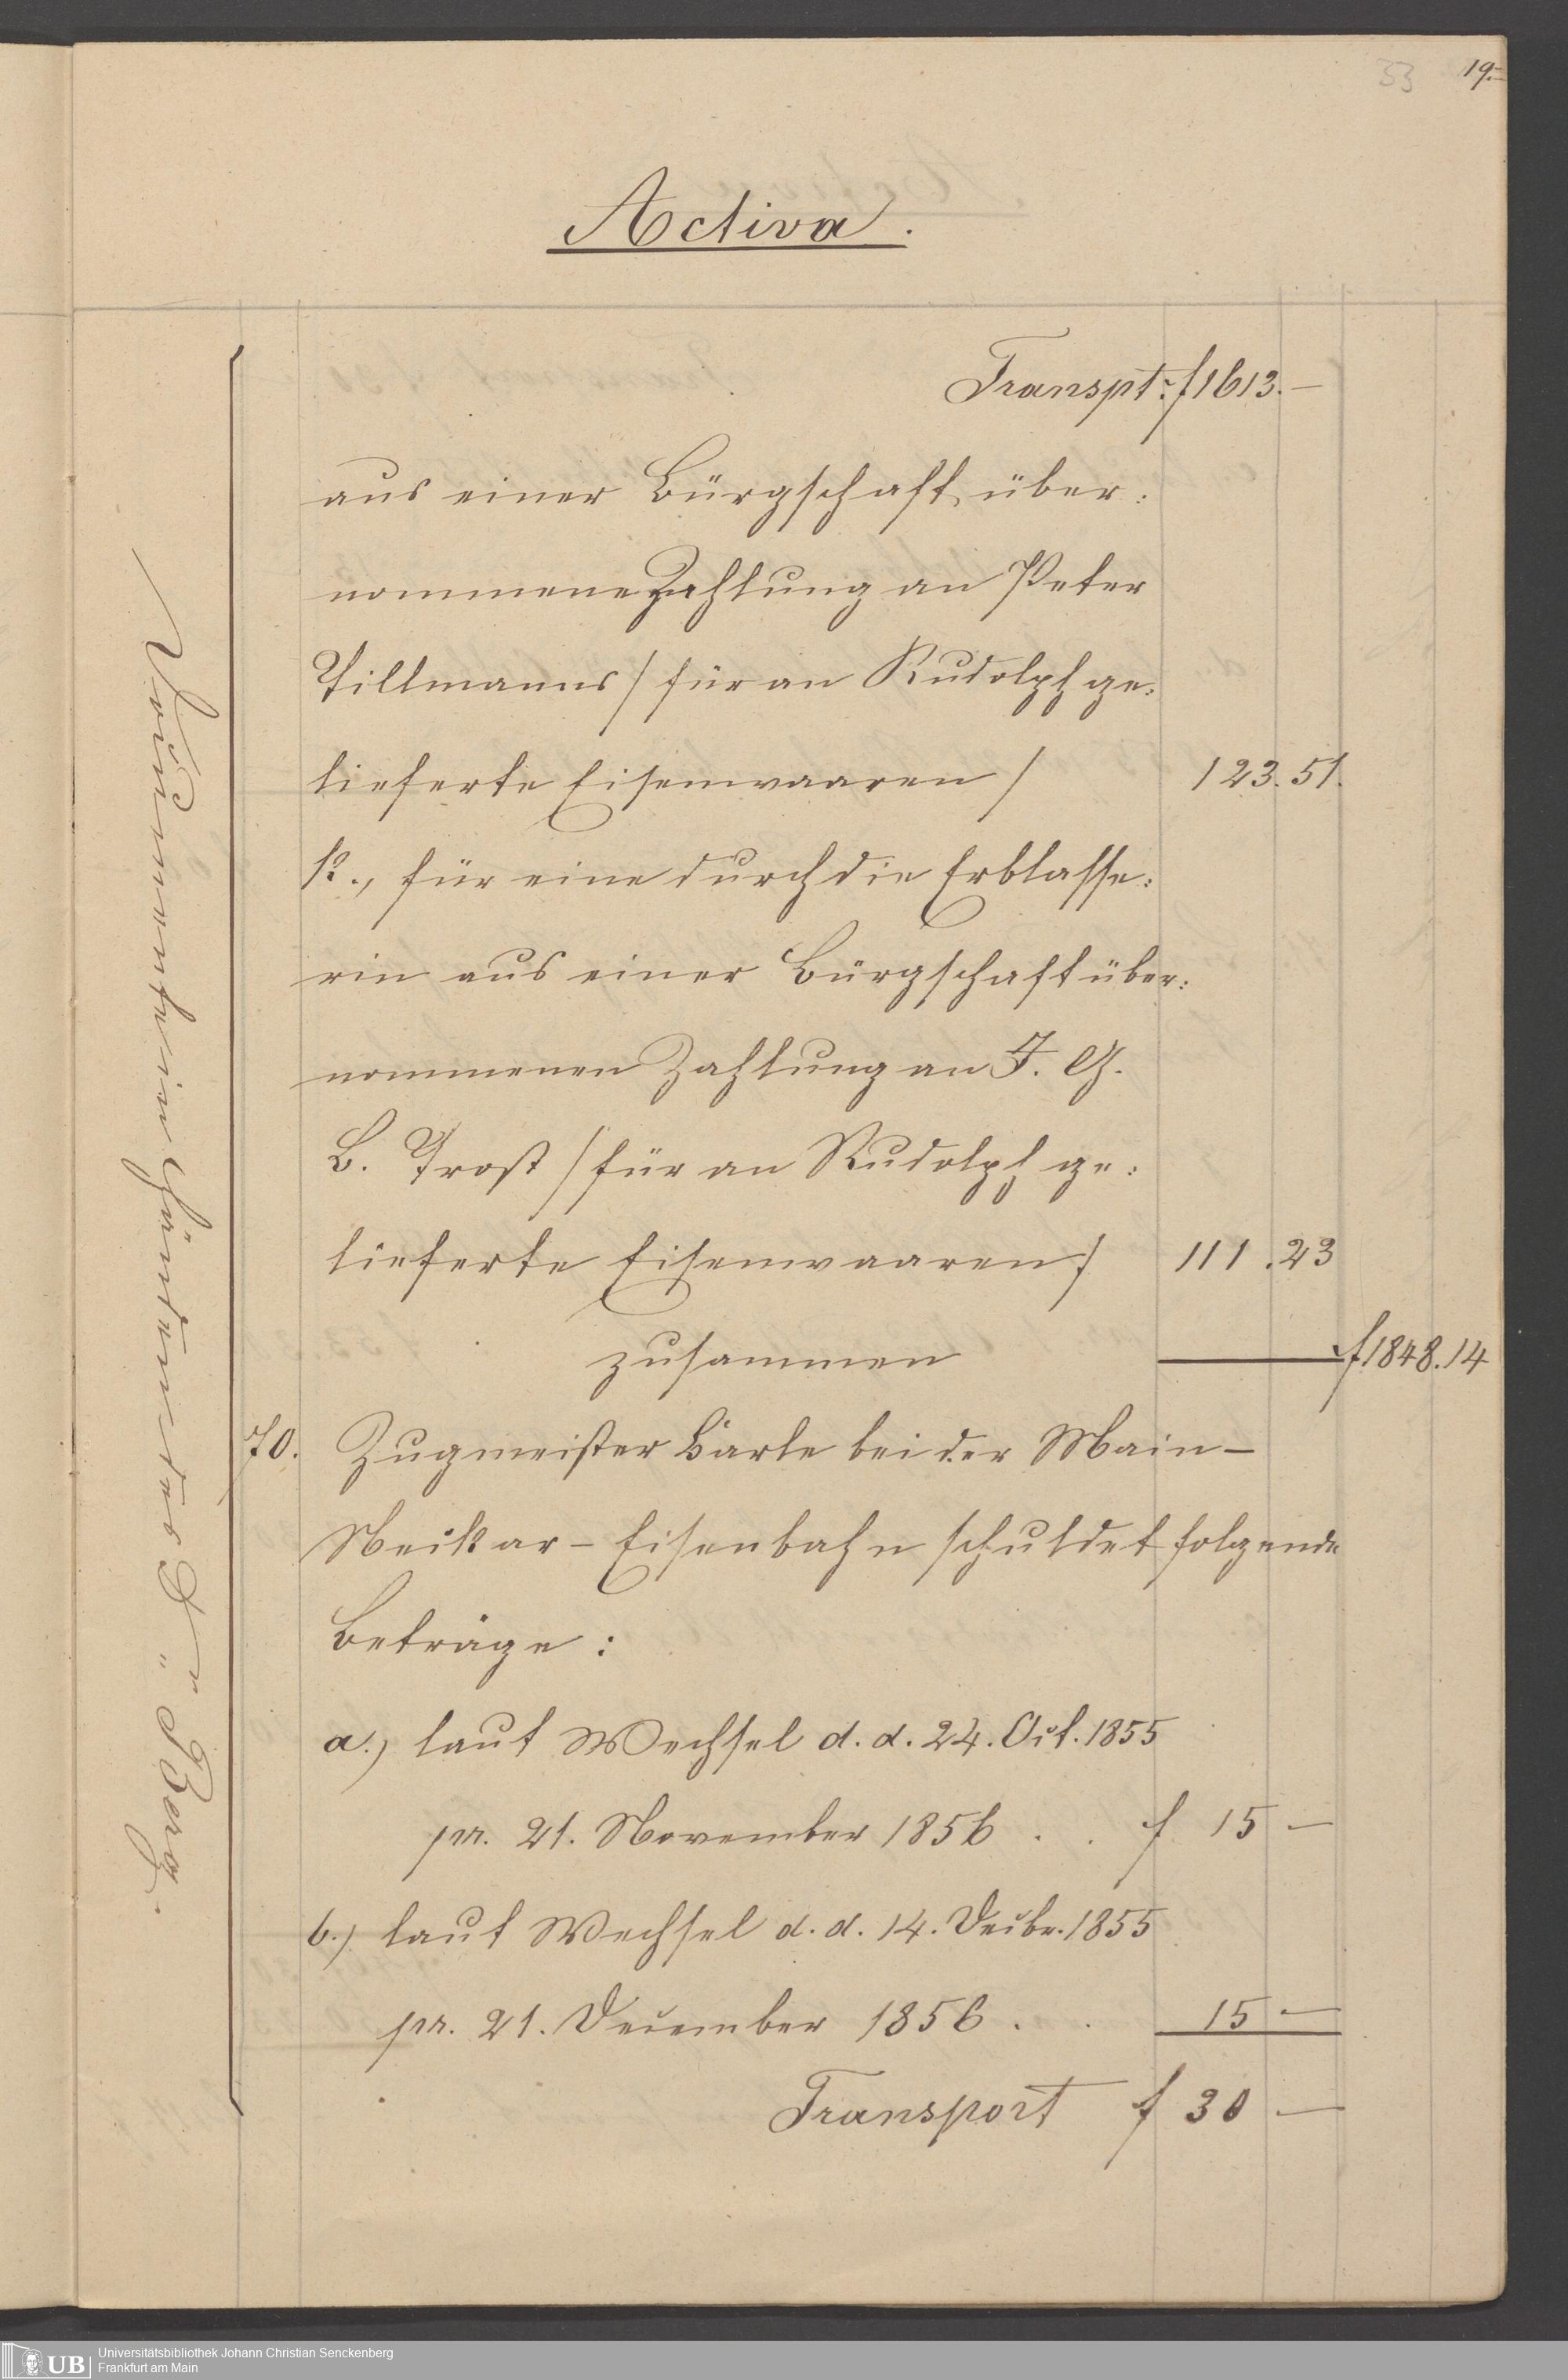 33 19.
Activa.
Transpt. f 1613. —
aus einer Bürgschaft über:
nommene Zahlung an Peter
Tillmanns / für an Rudolph ge:
lieferte Eisenwaaren / 123. 51.
k., für eine durch die Erblasse:
rin aus einer Bürgschaft über:
nommenen Zahlung an J. G.
B. Trost / für an Rudolph ge:
lieferte Eisenwaaren / 111. 23
zusammen f 1848. 14
70. Zugmeister Bärle bei der Main-
Neckar-Eisenbahn schuldet folgende
Beträge:
a.) laut Wechsel d. d. 24. Oct. 1855
pr. 21. November 1856 . . f 15 —
b.) laut Wechsel d. d. 14. Decbr. 1855
pr. 21. December 1856 . . 15 —
Transport f 30 —
Documente in Händen des Dr. Berg.
Universitätsbibliothek Johann Christian Senckenberg
Frankfurt am Main
UB